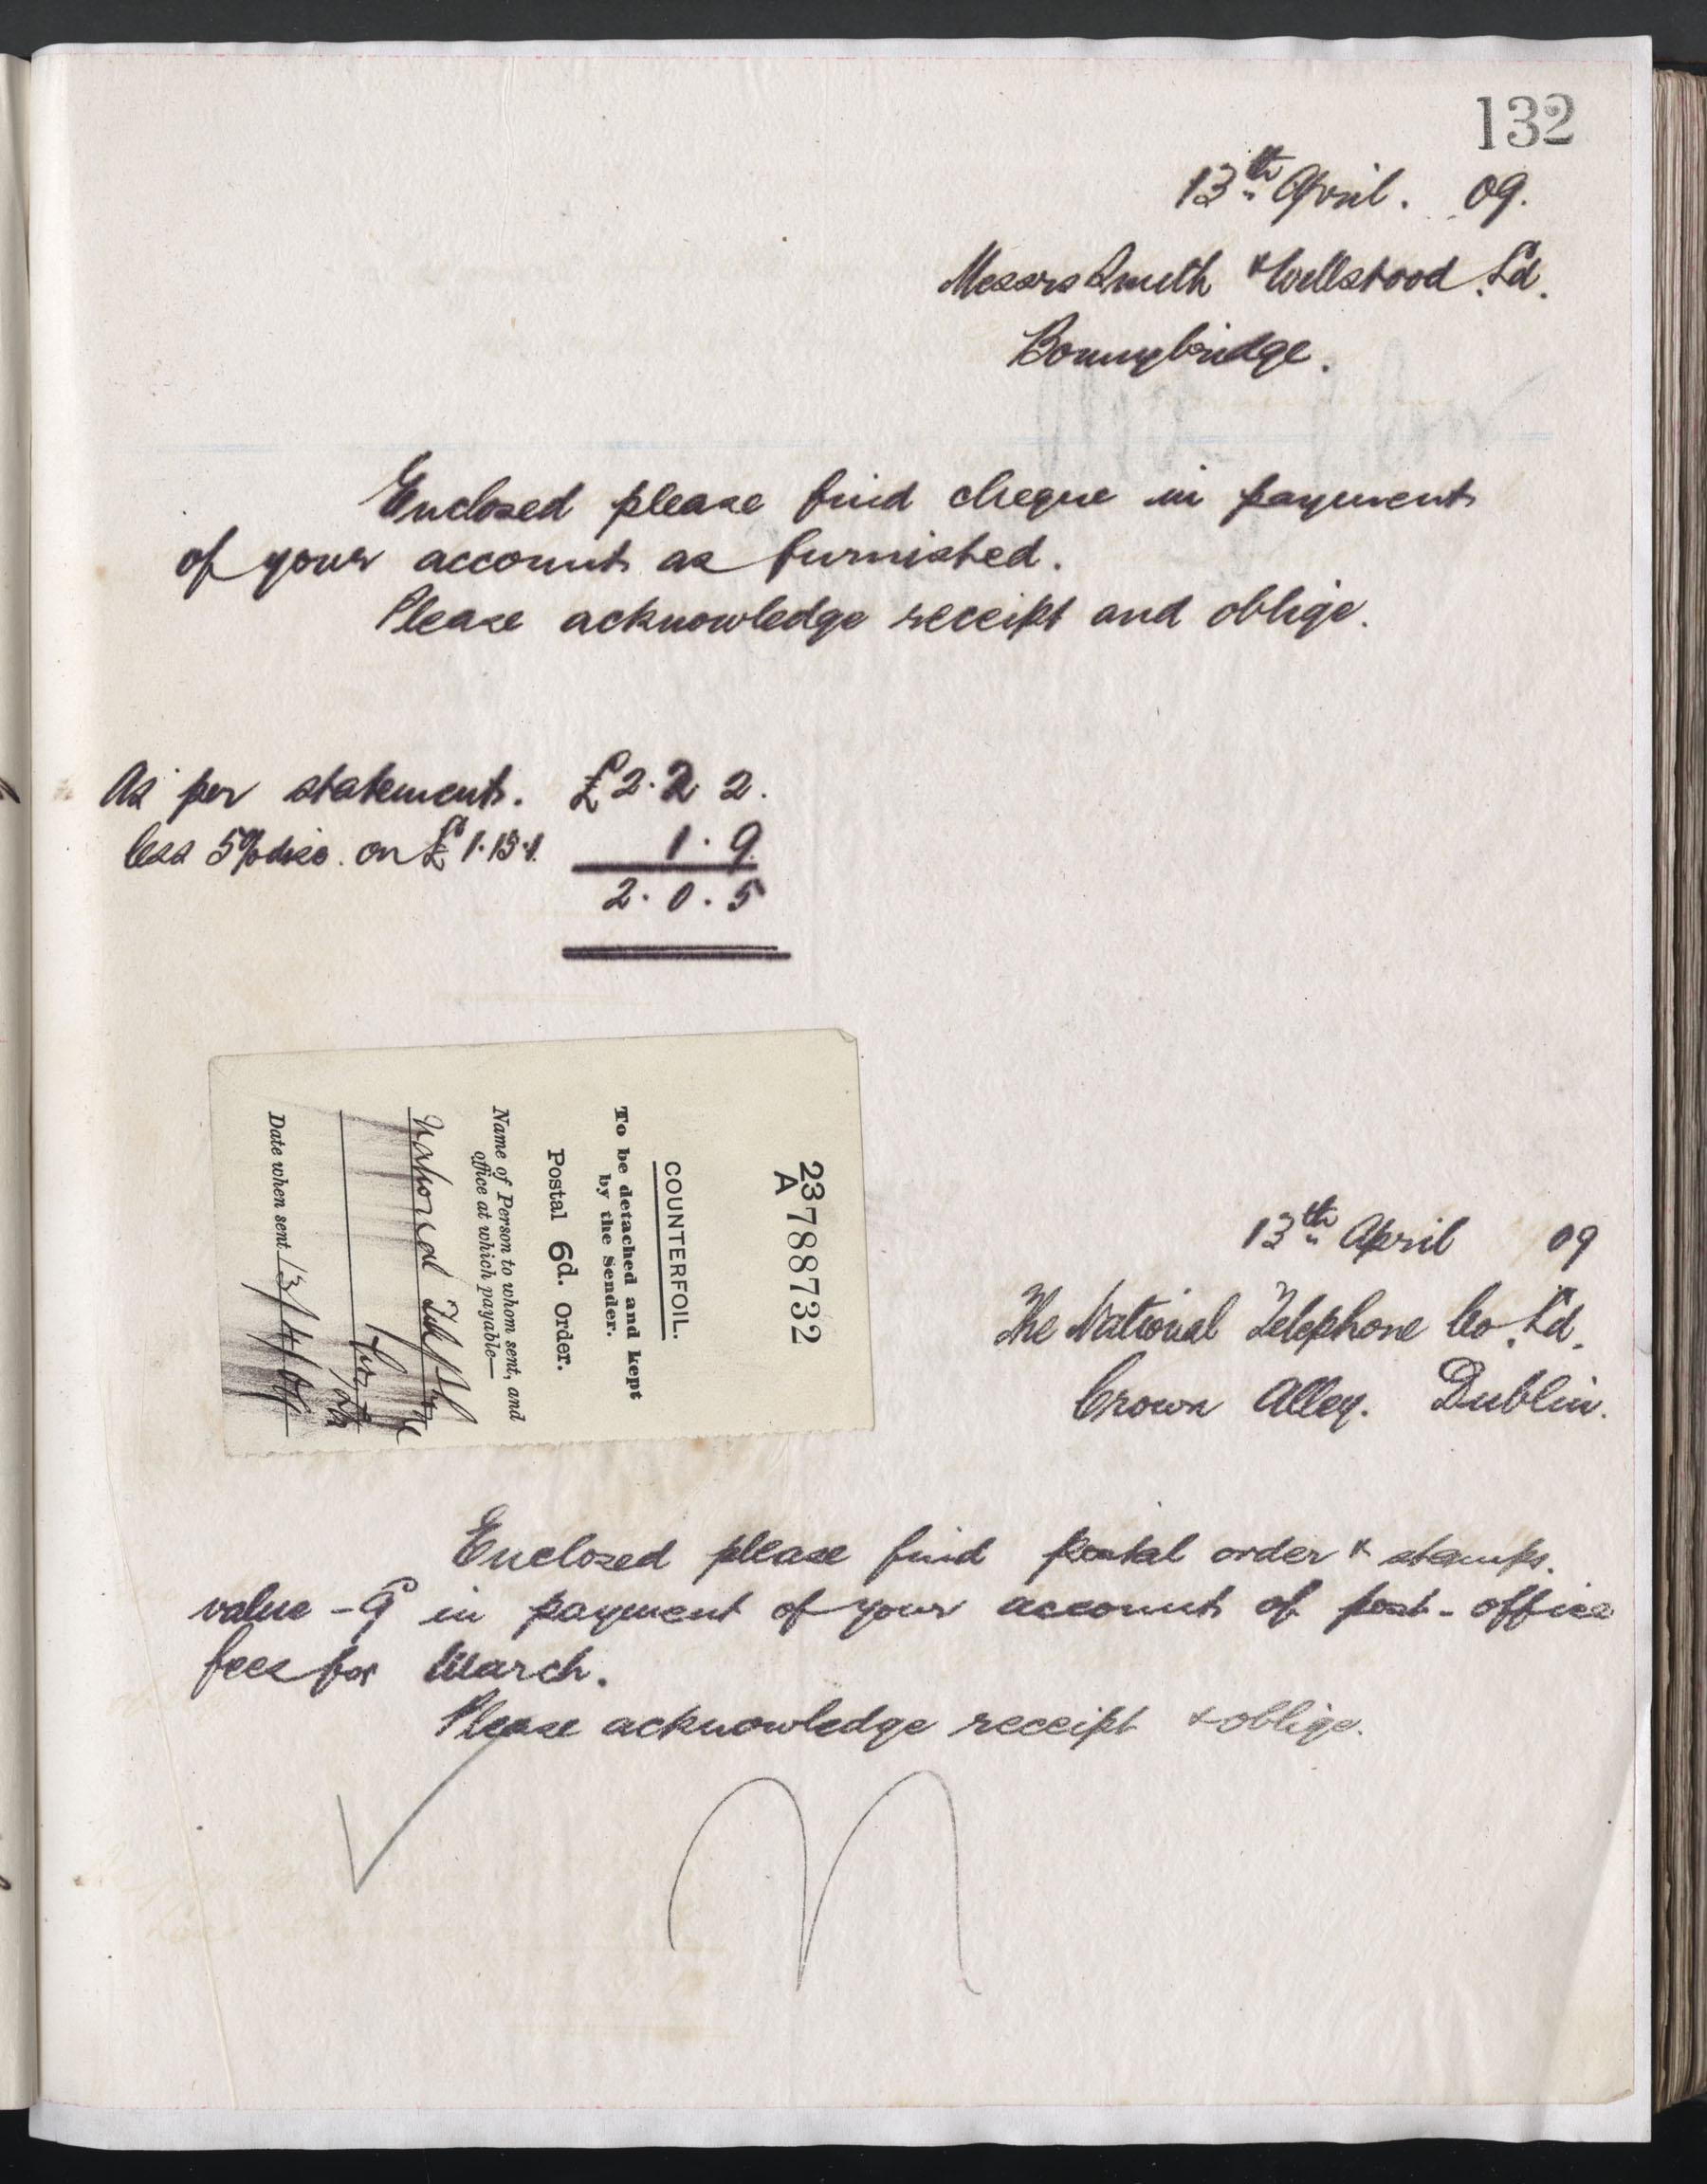 132
13th April. 09.
Messrs Smith & Wellstood Ld.
Bonnybridge.
Enclosed please find cheque in payment
of your account as furnished.
Please acknowledge receipt and oblige.
As per statement. £2. 2 2.
less 5% disc. on £1.15.1. 1. 9.
2. 0. 5
23 788732
A
COUNTERFOIL.
To be detached and kept
by the Sender.
Postal 6d. Order.
Name of Person to whom sent, and
office at which payable—
National
Date when sent 13/4/09
13th April 09
The National Telephone Co. Ld.
Crown Alley. Dublin.
Enclosed please find postal order & stamps.
value - 9 in payment of your account of post-office
fees for March.
Please acknowledge receipt & oblige.